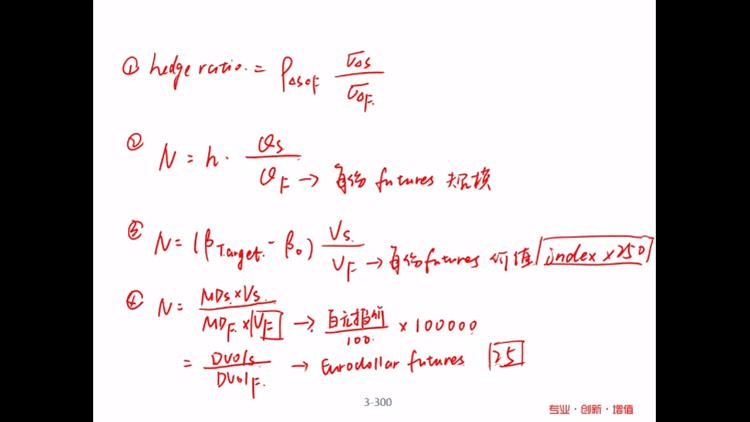 ① hedge ratio = ρ_{ΔSΔF} σ_{ΔS} / σ_{ΔF}
② N = h · Q_S / Q_F → 每份 futures 规模
③ N = (β_{Target} - β_0) V_S / V_F → 每份 futures 价值 index × 250
④ N = MD_S × V_S / MD_F × V_F → 百元报价 / 100 × 100000
= DV01_S / DV01_F → Eurodollar futures 25
3-300
专业·创新·增值